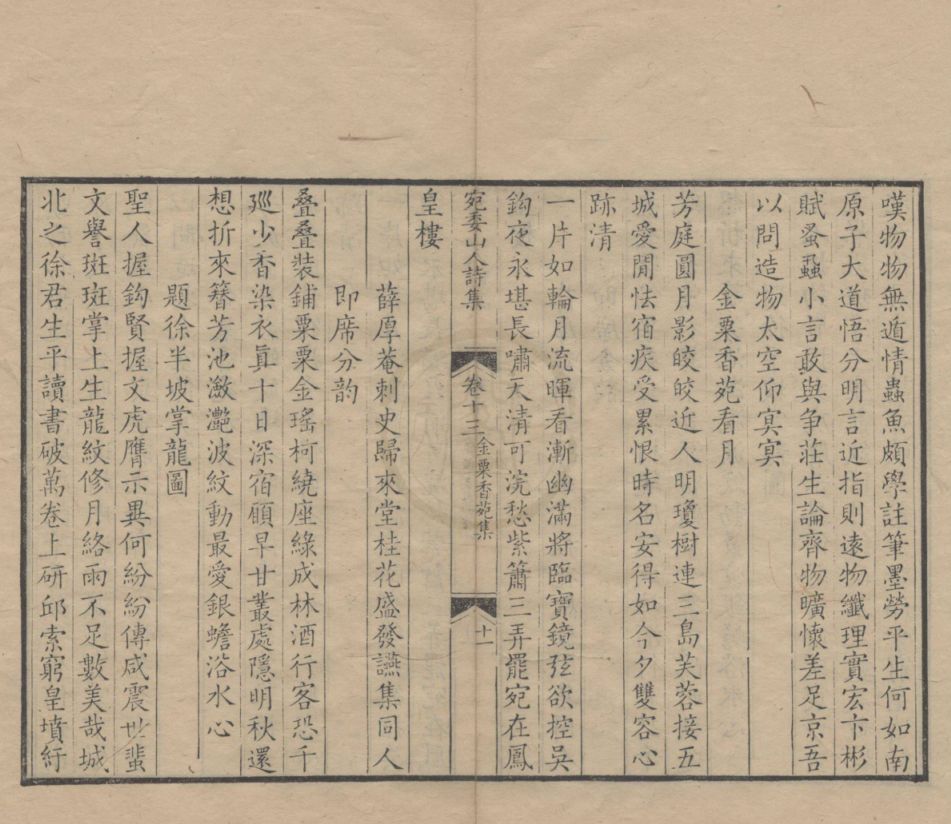 嘆物物無遁情蟲魚頗學註筆墨勞平生何如南
原子大道悟分明言近指則遠物纖理實宏卞彬
賦蚤蝨小言敢與争莊生論齊物曠懷差足京吾
以問造物太空仰寞寞
金粟香苑看月
芳庭圓月影皎皎近人明瓊樹連三島芙蓉接五
城愛閒怯宿疾受累恨時名安得如今夕雙容心
跡清
一片如輪月流暉看漸幽滿將臨寶鏡弦欲控吳
鈎夜永堪長嘯天清可浣愁紫簫三弄罷宛在鳳
宛委山人詩集 卷十三 金粟香苑集 十一
皇樓
薛厚菴刺史歸來堂桂花盛發讌集同人
即席分韵
叠叠裝鋪粟粟金瑤柯繞座綠成林酒行客恐千
廵少香染衣眞十日深宿願早甘叢處隱明秋還
想折來簪芳池瀲灧波紋動最愛銀蟾浴水心
題徐半坡掌龍圖
聖人握鈎賢握文虎膺示異何紛紛傳咸震世蜚
文譽斑斑掌上生龍紋修月絡雨不足數美哉城
北之徐君生平讀書破萬卷上研邱索窮皇墳紆